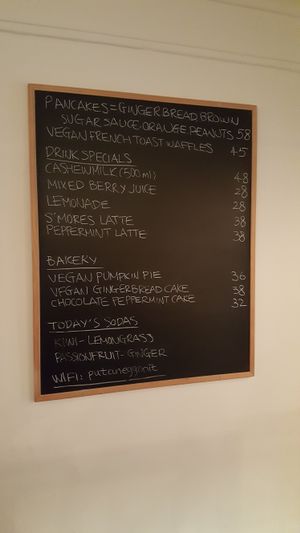 PANCAKES = GINGERBREAD, BROWN
SUGAR SAUCE, ORANGE, PEANUTS 58
VEGAN FRENCH TOAST WAFFLES 45
DRINK SPECIALS
CASHEW MILK (500 ml) 48
MIXED BERRY JUICE 28
LEMONADE 28
S'MORES LATTE 38
PEPPERMINT LATTE 38
BAKERY
VEGAN PUMPKIN PIE 36
VEGAN GINGERBREAD CAKE 38
CHOCOLATE PEPPERMINT CAKE 32
TODAY'S SODAS
KIWI - LEMONGRASS
PASSIONFRUIT - GINGER
WIFI: putaneggonit